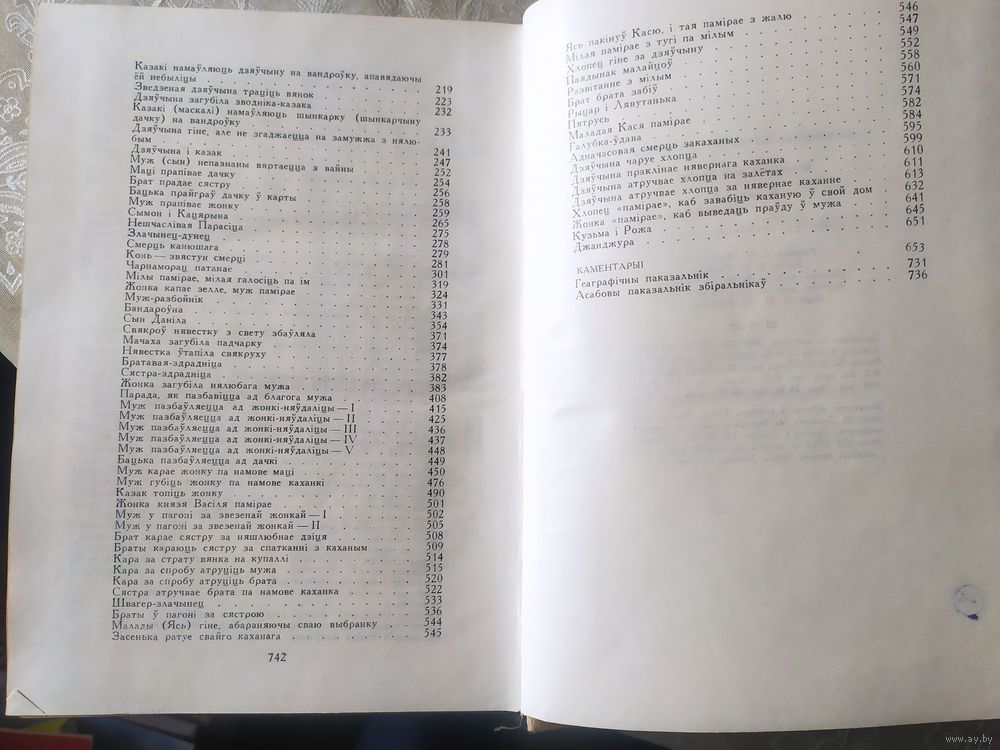 Казакі намаўляюць дзяўчыну на вандроўку, апавядаючы
ёй небыліцы . . . 219
Зведзеная дзяўчына траціць вянок . . . 223
Дзяўчына загубіла зводніка-казака . . . 232
Казакі (маскалі) намаўляюць шынкарку (шынкарчыну
дачку) на вандроўку . . . 233
Дзяўчына гіне, але не згаджаецца на замужжа з нялю-
бым . . . 241
Дзяўчына і казак . . . 247
Муж (сын) непазнаны вяртаецца з вайны . . . 252
Маці прапівае дачку . . . 254
Брат прадае сястру . . . 256
Бацька прайграў дачку ў карты . . . 258
Муж прапівае жонку . . . 259
Сымон і Кацярына . . . 265
Нешчаслівая Парасіца . . . 275
Злачынец-дунец . . . 278
Смерць канюшага . . . 279
Конь — звястун смерці . . . 281
Чарнаморац патанае . . . 301
Мілы памірае, мілая галосіць па ім . . . 319
Жонка капае зелле, муж памірае . . . 324
Муж-разбойнік . . . 331
Бандароўна . . . 343
Сын Даніла . . . 354
Свякроў нявестку з свету збаўляла . . . 371
Мачаха загубіла падчарку . . . 374
Нявестка ўтапіла свякруху . . . 377
Братавая-здрадніца . . . 378
Сястра-здрадніца . . . 382
Жонка загубіла нялюбага мужа . . . 383
Парада, як пазбавіцца ад благога мужа . . . 408
Муж пазбаўляецца ад жонкі-няўдаліцы — I . . . 415
Муж пазбаўляецца ад жонкі-няўдаліцы — II . . . 425
Муж пазбаўляецца ад жонкі-няўдаліцы — III . . . 436
Муж пазбаўляецца ад жонкі-няўдаліцы — IV . . . 437
Муж пазбаўляецца ад жонкі-няўдаліцы — V . . . 448
Бацька пазбаўляецца ад дачкі . . . 449
Муж карае жонку па намове маці . . . 450
Муж губіць жонку па намове каханкі . . . 476
Казак топіць жонку . . . 490
Жонка князя Васіля памірае . . . 501
Муж у пагоні за звезенай жонкай — I . . . 502
Муж у пагоні за звезенай жонкай — II . . . 505
Брат карае сястру за няшлюбнае дзіця . . . 508
Браты караюць сястру за спатканні з каханым . . . 509
Кара за страту вянка на купаллі . . . 514
Кара за спробу атруціць мужа . . . 515
Кара за спробу атруціць брата . . . 520
Сястра атручвае брата па намове каханка . . . 522
Швагер-злачынец . . . 533
Браты ў пагоні за сястрою . . . 536
Малады (Ясь) гіне, абараняючы сваю выбранку . . . 544
Засенька ратуе свайго каханага . . . 545
742
Ясь пакінуў Касю, і тая памірае з жалю . . . 546
Мілая памірае з тугі па мілым . . . 547
Хлопец гіне за дзяўчыну . . . 549
Паядынак малайцоў . . . 552
Развітанне з мілым . . . 558
Брат брата забіў . . . 560
Рыцар і Лявутанька . . . 571
Пятрусь . . . 574
Маладая Кася памірае . . . 582
Галубка-ўдава . . . 584
Адначасовая смерць закаханых . . . 595
Дзяўчына чаруе хлопца . . . 599
Дзяўчына праклінае нявернага каханка . . . 610
Дзяўчына атручвае хлопца на залётах . . . 611
Дзяўчына атручвае хлопца за нявернае каханне . . . 613
Хлопец «памірае», каб завабіць каханую ў свой дом . . . 632
Жонка «памірае», каб выведаць праўду ў мужа . . . 641
Кузьма і Рожа . . . 645
Джанджура . . . 651
КАМЕНТАРЫІ . . . 653
Геаграфічны паказальнік . . . 731
Асабовы паказальнік збіральнікаў . . . 736
www.ay.by